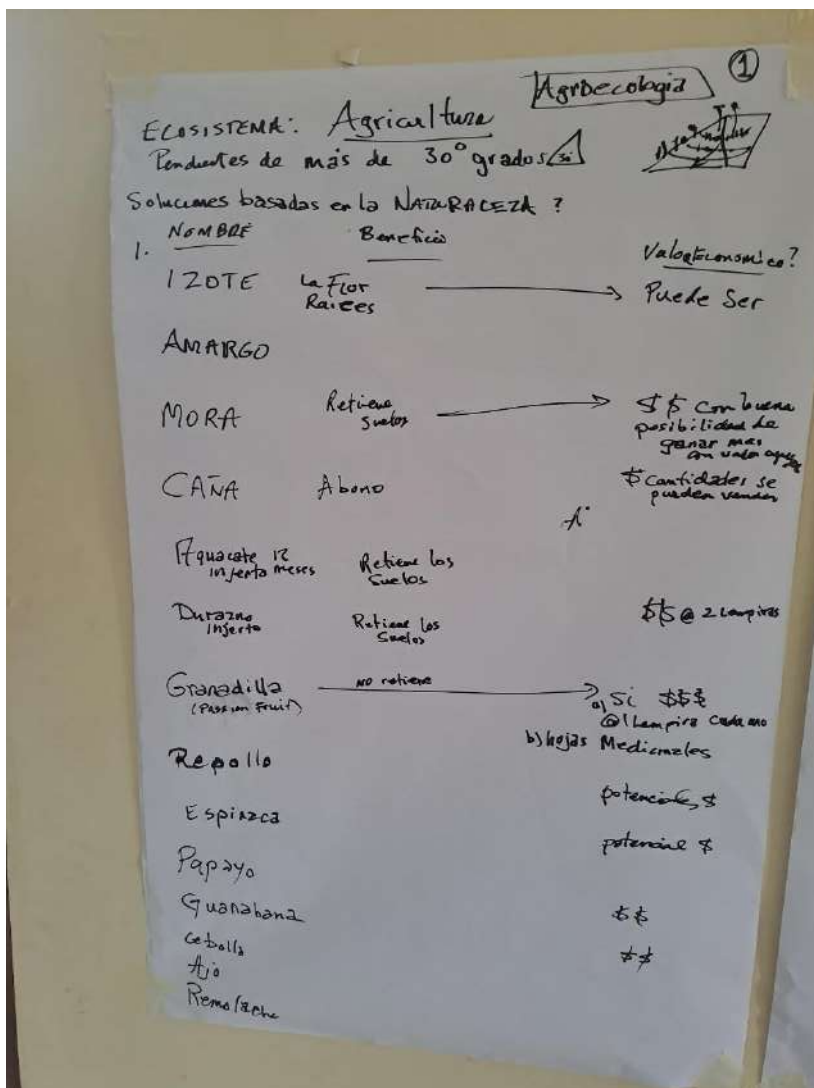 Agroecologia
1
ECOSISTEMA: Agricultura
Pendientes de más de 30° grados si
Soluciones basadas en la NATURALEZA ?
1. NOMBRE Beneficio Valor Economico?
IZOTE La Flor Raices Puede Ser
AMARGO
MORA Retiene Suelos $$ Con buena
posibilidad de
ganar mas
con valor
CAÑA Abono $ Cantidades se
pueden vender
Aguacate 12
injerto meses Retiene los
Suelos
Durazno
Injerto Retiene los
Suelos $$ @ 2 Lempiras
Granadilla NO retiene a) Si $$$
(Passion Fruit) @ 1 Lempira Cada uno
b) hojas Medicinales
Repollo
potencial $
Espinaca
potencial $
Papayo
Guanabana $$
Cebolla
$$
Ajo
Remolacha